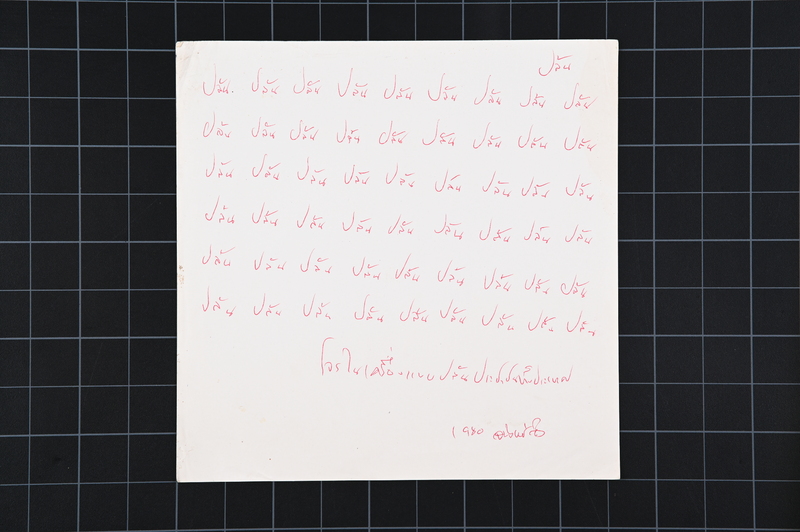 ปล้น
ปล้น ปล้น ปล้น ปล้น ปล้น ปล้น ปล้น ปล้น ปล้น
ปล้น ปล้น ปล้น ปล้น ปล้น ปล้น ปล้น ปล้น ปล้น
ปล้น ปล้น ปล้น ปล้น ปล้น ปล้น ปล้น ปล้น ปล้น
ปล้น ปล้น ปล้น ปล้น ปล้น ปล้น ปล้น ปล้น ปล้น
ปล้น ปล้น ปล้น ปล้น ปล้น ปล้น ปล้น ปล้น ปล้น
ปล้น ปล้น ปล้น ปล้น ปล้น ปล้น ปล้น ปล้น ปล้น
โจรในเครื่องแบบ ปล้นประชาชนทั้งประเทศ
1980